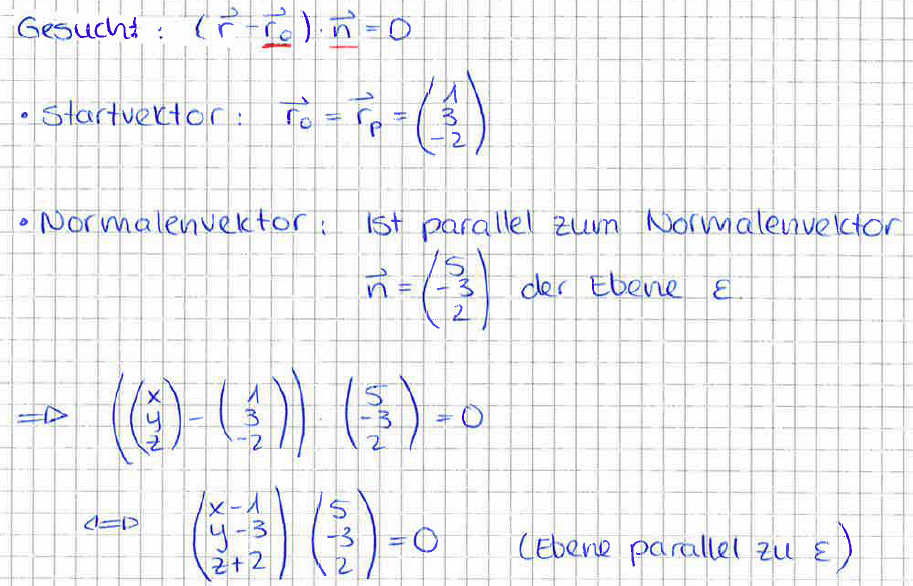 Gesucht: (r⃗ - r⃗₀) · n⃗ = 0
• Startvektor: r⃗₀ = r⃗ₚ = (1 3 -2)
• Normalenvektor: Ist parallel zum Normalenvektor
n⃗ = (5 -3 2) der Ebene ε.
=> ((x y z) - (1 3 -2)) · (5 -3 2) = 0
<=> (x-1 y-3 z+2) (5 -3 2) = 0 (Ebene parallel zu ε)